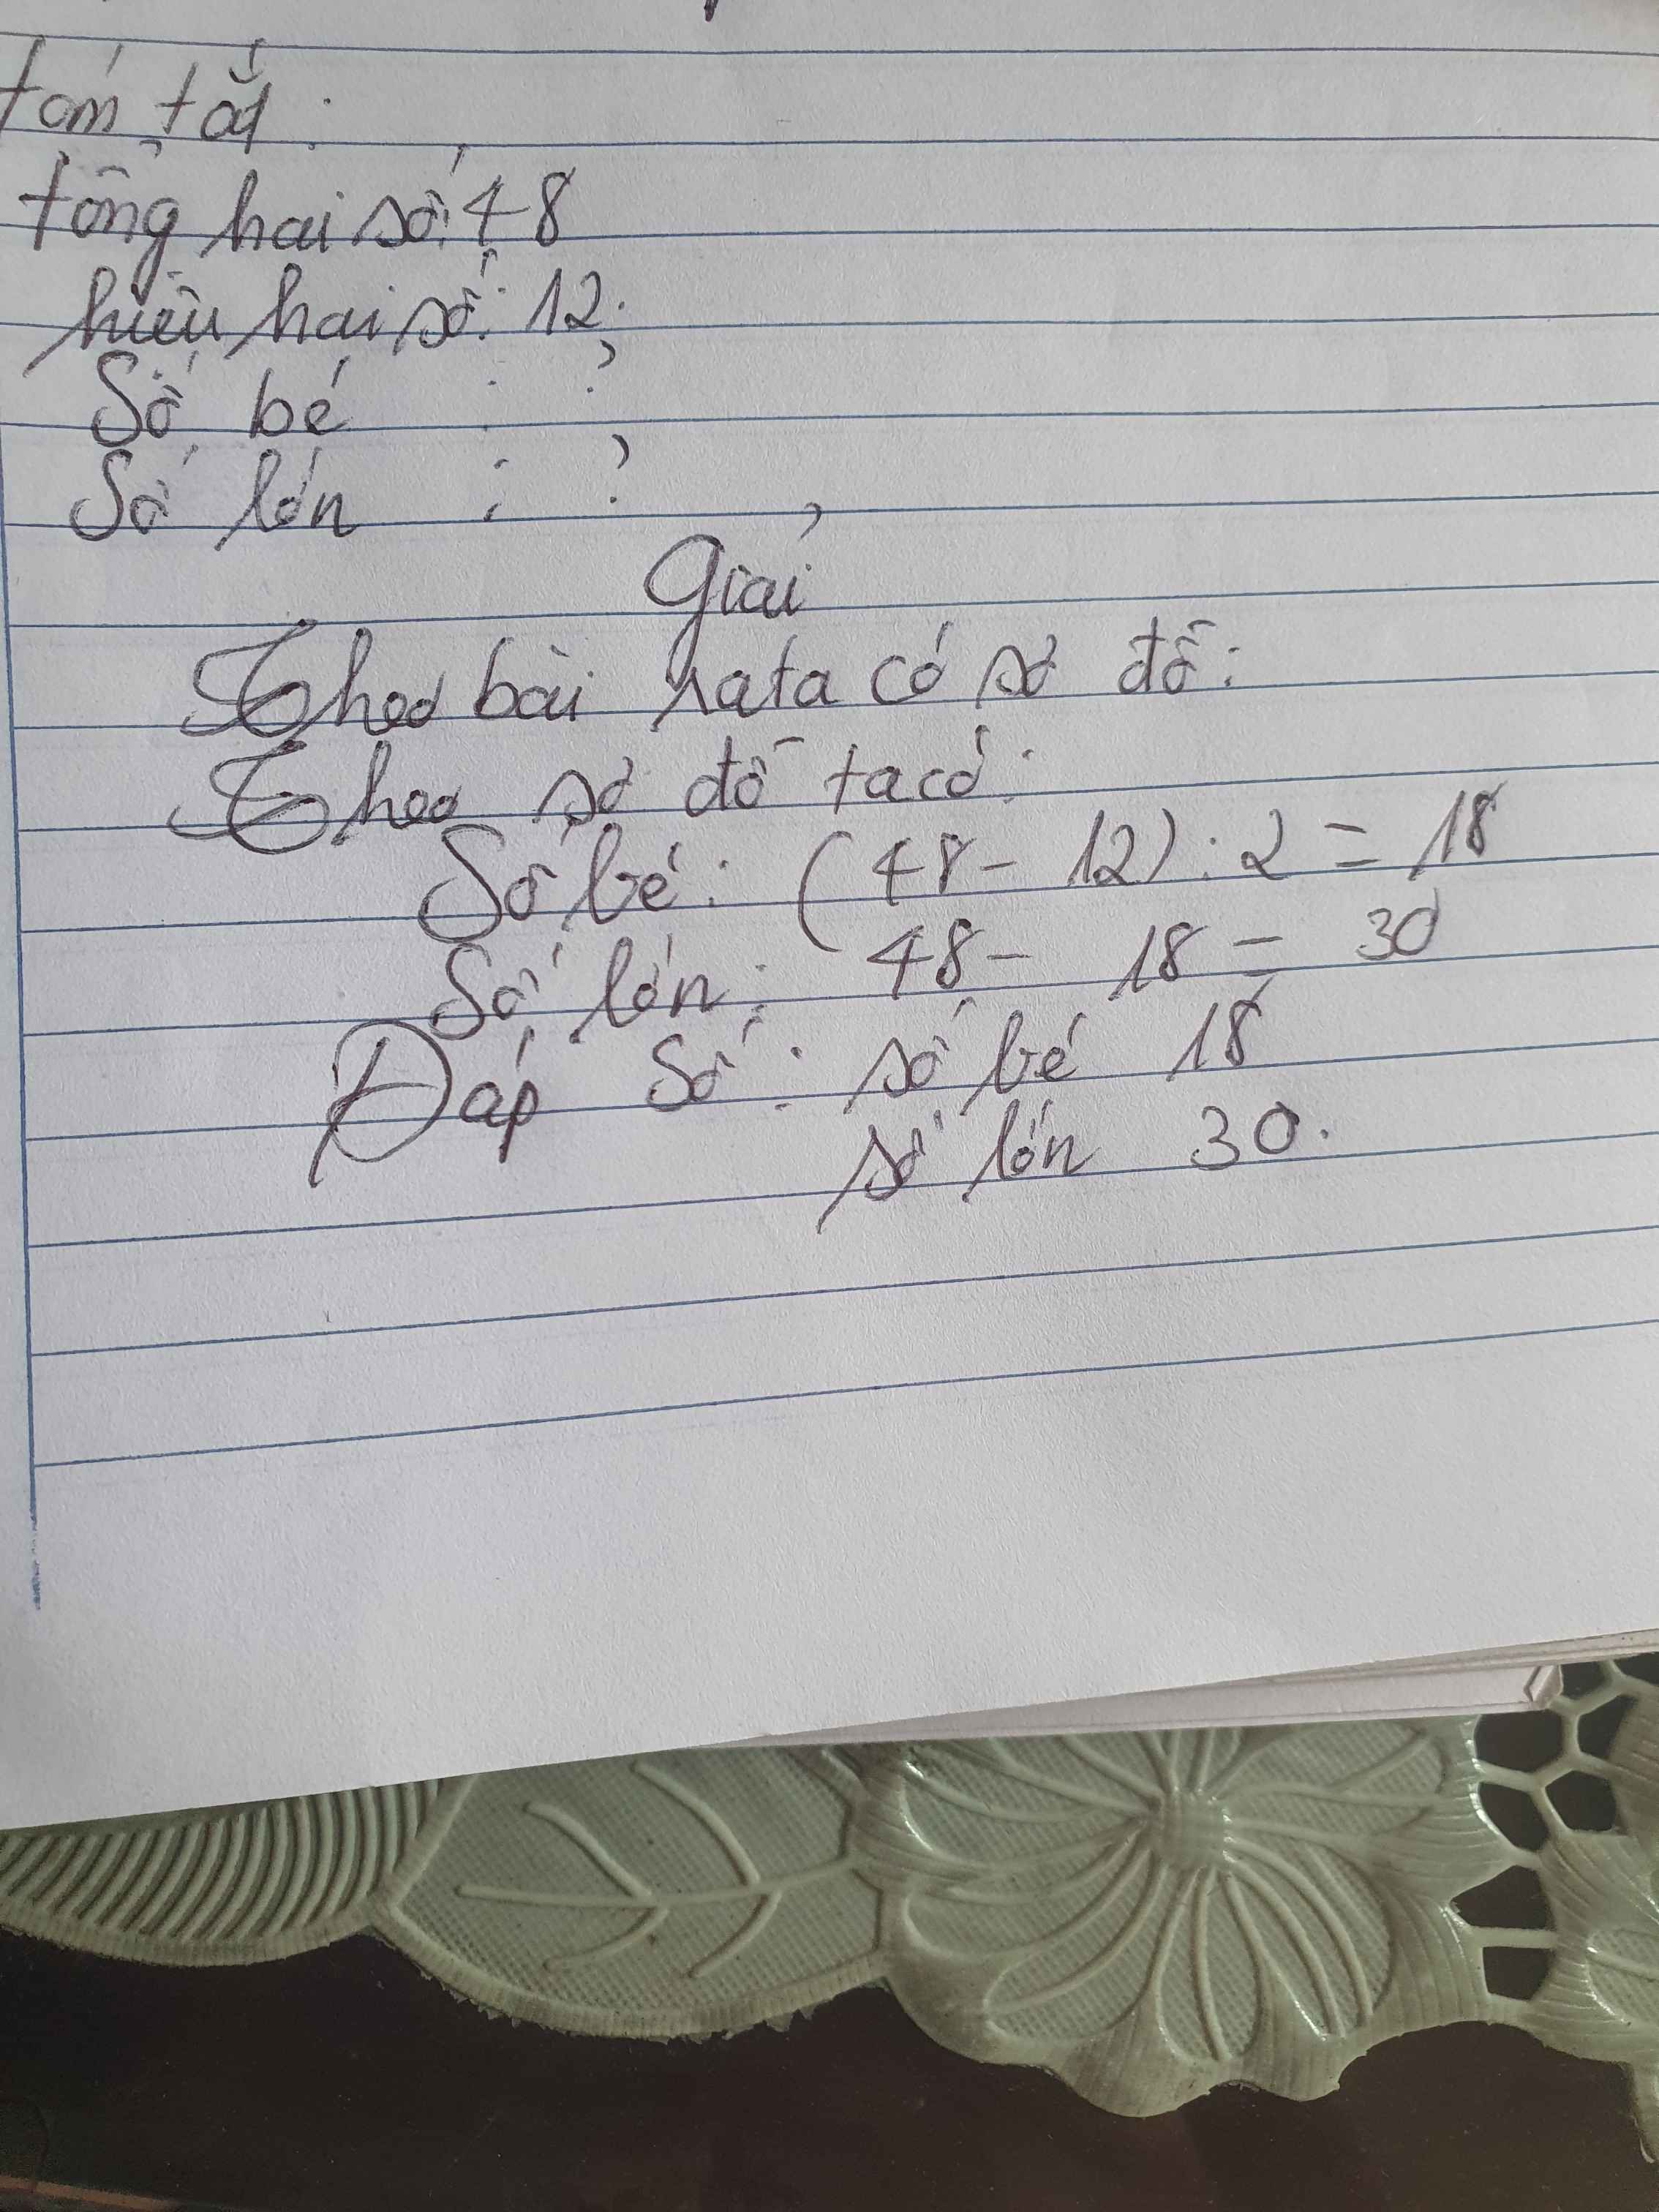 tóm tắt:
tổng hai số: 48
hiệu hai số: 12.
Số bé : ?
Số lớn : ?
Giải
Theo bài ra ta có sơ đồ:
Theo sơ đồ ta có:
Số bé: (48 - 12) : 2 = 18
Số lớn: 48 - 18 = 30
Đáp Số: số bé 18
số lớn 30.